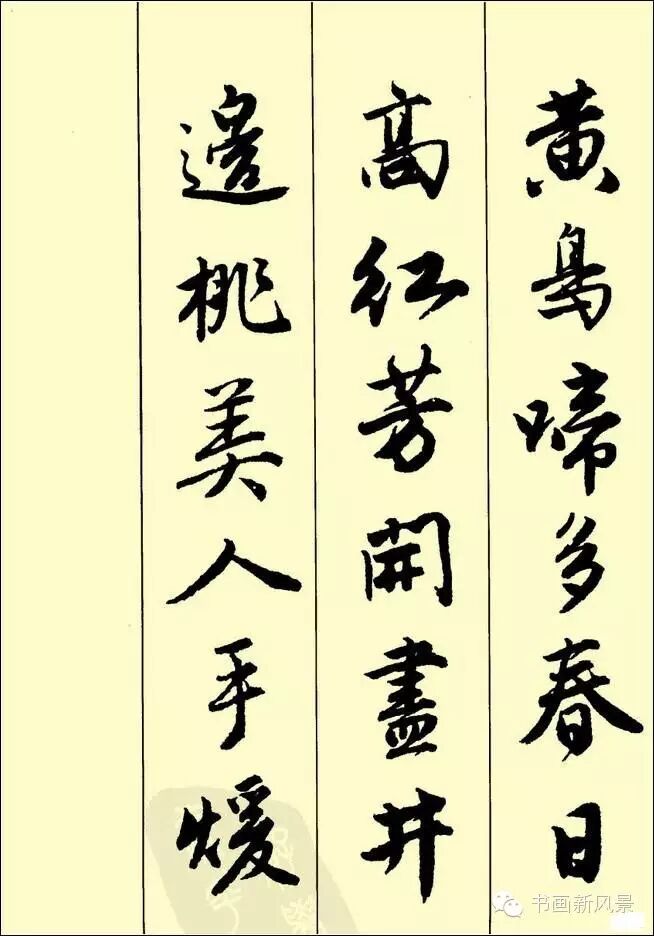 黄鳥啼多春日
高紅芳開盡井
邊桃美人手暖
书画新风景